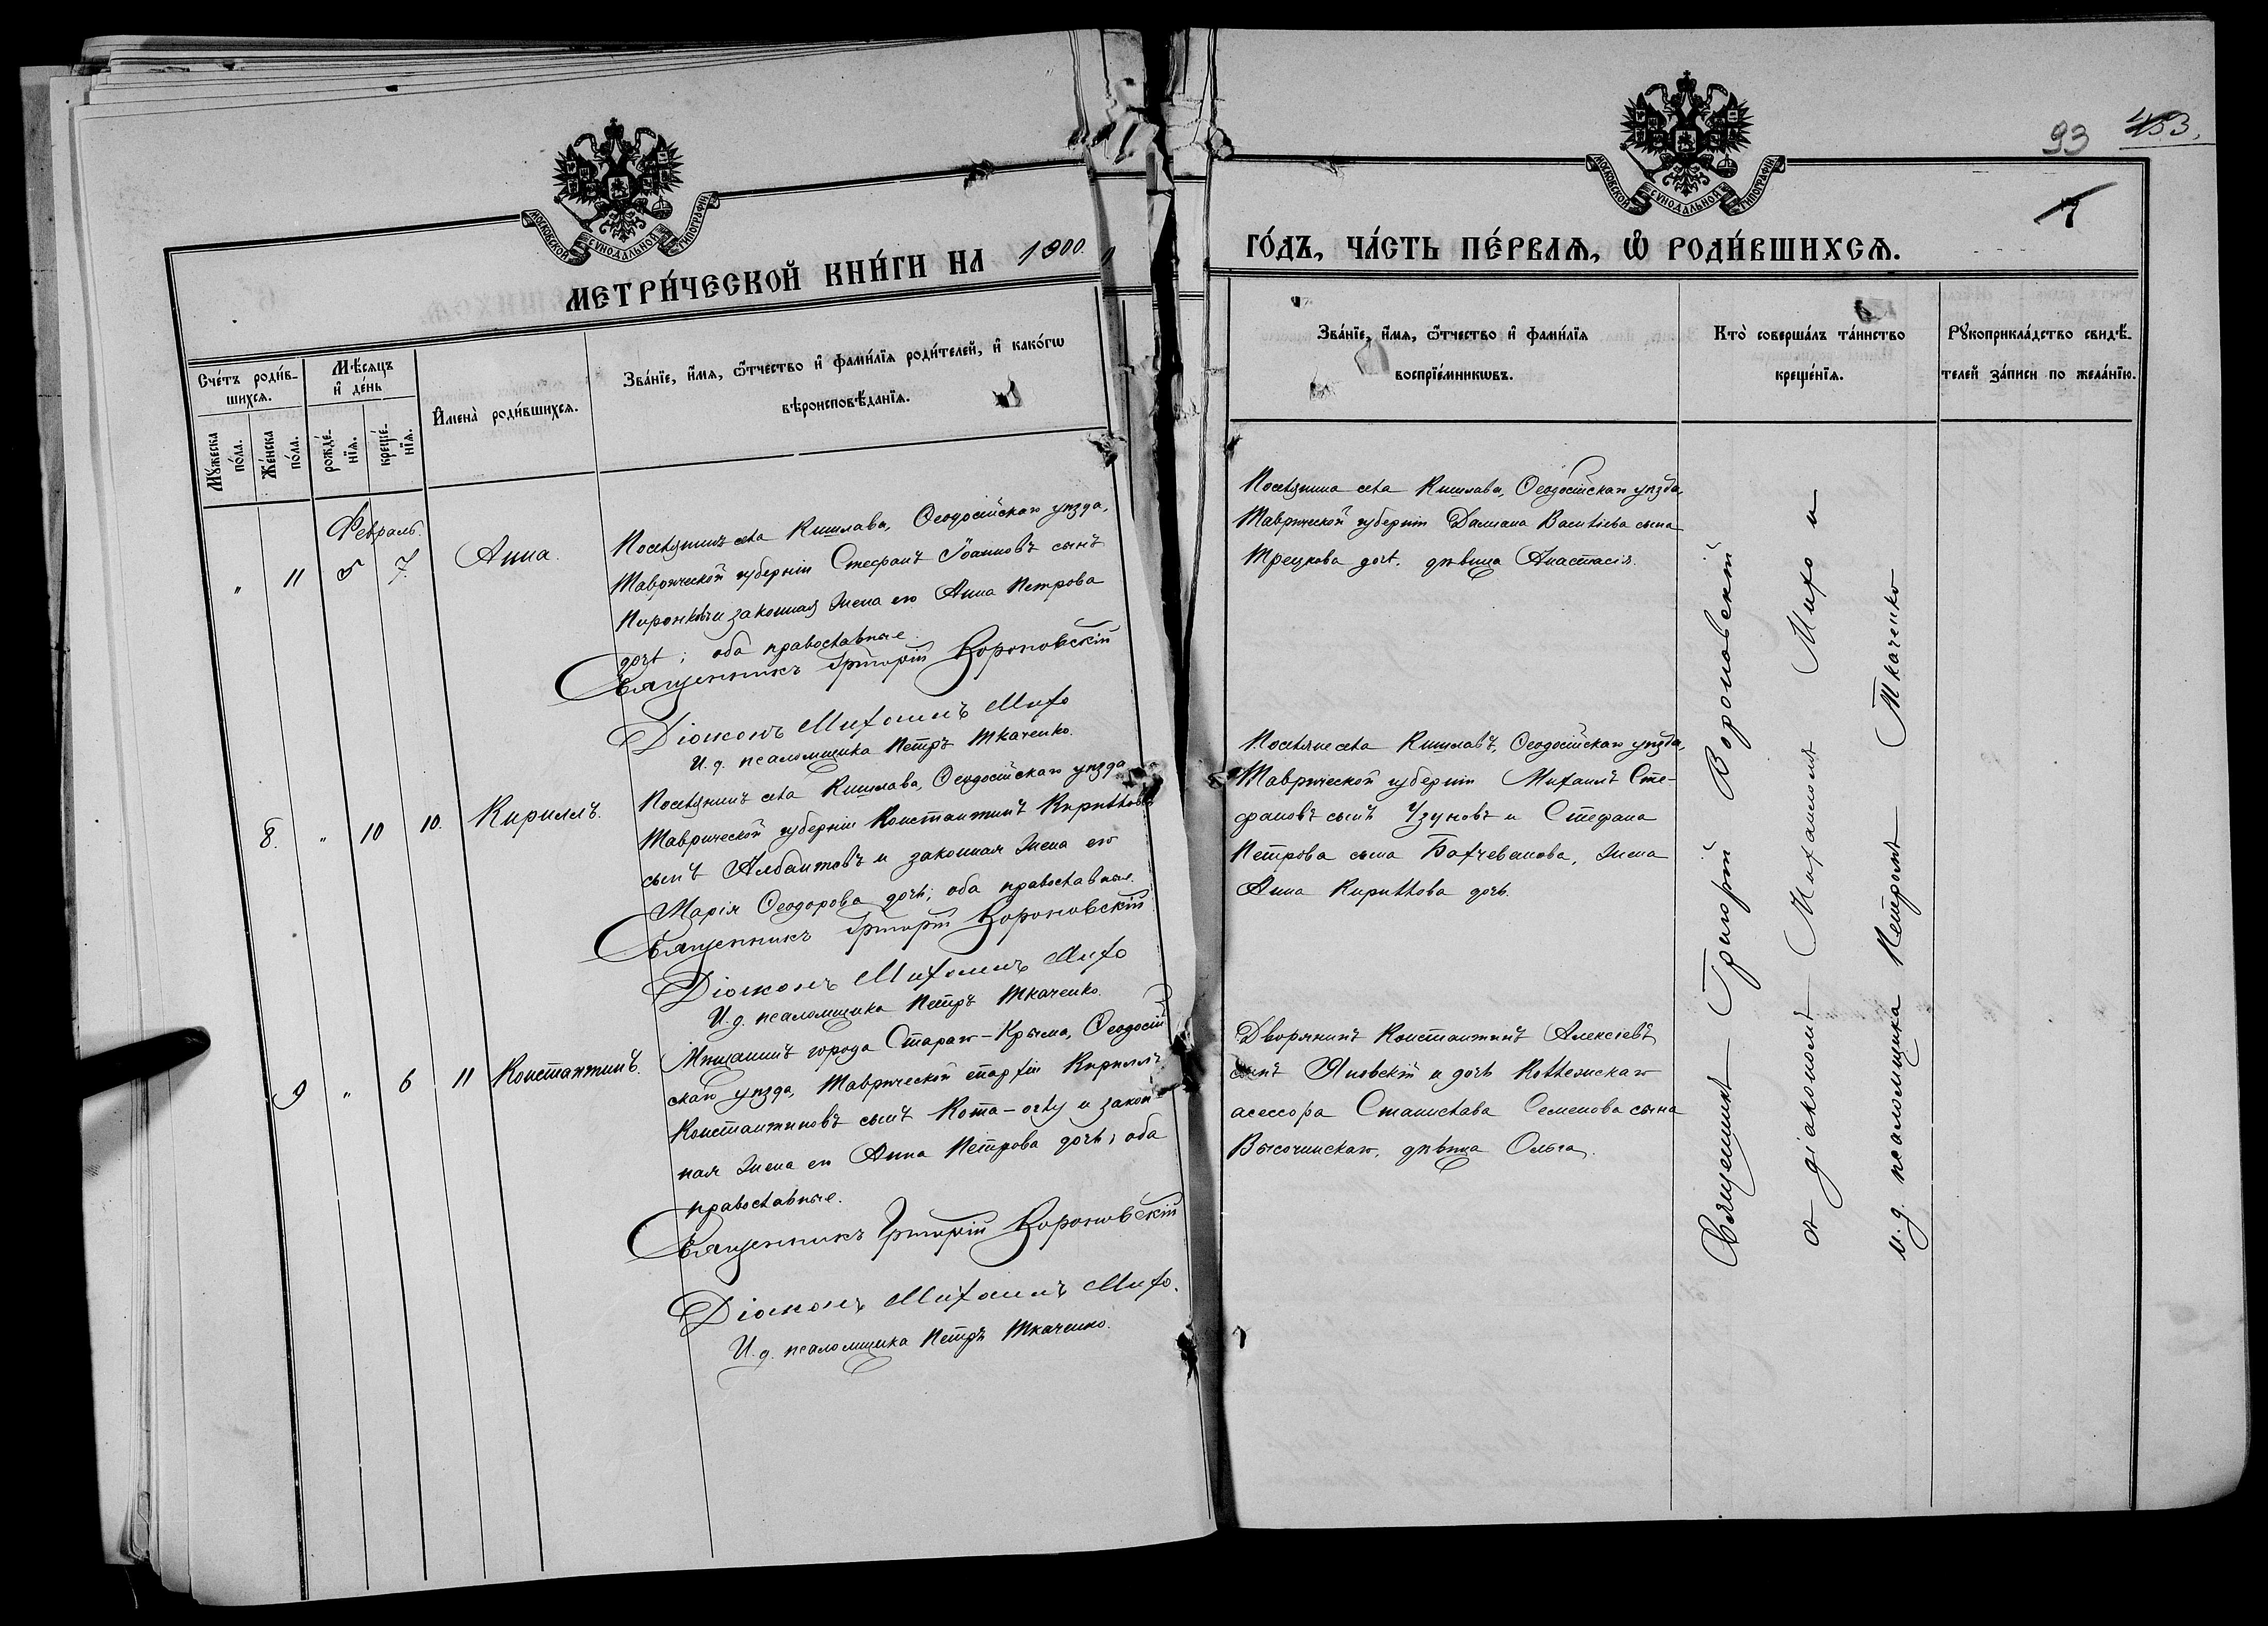 93 453.
7
МОСКОВСКОЙ СѴНОДАЛЬНОЙ ТИПОГРАФІИ
МОСКОВСКОЙ СѴНОДАЛЬНОЙ ТИПОГРАФІИ
МЕТРИ́ЧЕСКОЙ КНИ́ГИ НА 1900.
ГО́ДЪ, ЧА́СТЬ ПЕ́РВАЯ, Ѽ РОДИ́ВШИХСЯ.
Сче́тъ роди́в-
шихся.
Мꙋ́жеска
по́ла.
Же́нска
по́ла.
Мѣ́сяцъ
и҆ де́нь
рожде́-
нїя.
креще́-
нїя.
И҆мена̀ роди́вшихся.
Зва́нїе, и҆́мя, ѻ҆́тчество и҆ фами́лїя роди́телей, и҆ како́гѡ
вѣроисповѣ́данїя.
Зва́нїе, и҆́мя, ѻ҆́тчество и҆ фами́лїя
воспрїе́мникѡвъ.
Кто̀ соверша́лъ та́инство
креще́нїя.
Рꙋкоприкла́дство свидѣ́-
телей за́писи по жела́нїю.
Февраль.
" 11 5 7. Анна.
Поселянинъ села Кишлава, Ѳеодосійскаго уѣзда,
Таврической губерніи Стефанъ Іоанновъ сынъ
Пиронковъ и законная жена его Анна Петрова
дочь; оба православные.
Священникъ Григорій Вороновскій
Діаконъ Михаилъ Михо
И. д. псаломщика Петръ Ткаченко.
Поселянина села Кишлава, Ѳеодосійскаго уѣзда,
Таврической губерніи Даміана Васильева сына
Трецкова дочь, дѣвица Анастасія.
8. " 10 10. Кириллъ.
Поселянинъ села Кишлава, Ѳеодосійскаго уѣзда
Таврической губерніи Константинъ Кирилловъ
сынъ Албантовъ и законная жена его
Марія Ѳеодорова дочь; оба православные.
Священникъ Григорій Вороновскій
Діаконъ Михаилъ Михо
И. д. псаломщика Петръ Ткаченко.
Поселяне села Кишлавъ, Ѳеодосійскаго уѣзда,
Таврической губерніи Михаилъ Сте-
фановъ сынъ Узуновъ и Стефана
Петрова сына Бахчеванова, жена
Анна Кириллова дочь.
9 " 6 11 Константинъ.
Мѣщанинъ города Стараго-Крыма, Ѳеодосій-
скаго уѣзда, Таврической епархіи Кириллъ
Константиновъ сынъ Кота-оглу и закон-
ная жена его Анна Петрова дочь; оба
православные.
Священникъ Григорій Вороновскій
Діаконъ Михаилъ Михо.
И. д. псаломщика Петръ Ткаченко.
Дворянинъ Константинъ Алексіевъ
сынъ Яновскій и дочь Коллежскаго
асессора Станислава Семенова сына
Высочинскаго, дѣвица Ольга.
Священникъ Григорій Вороновскій
съ діакономъ Михаиломъ Михо и
и. д. псаломщика Петромъ Ткаченко